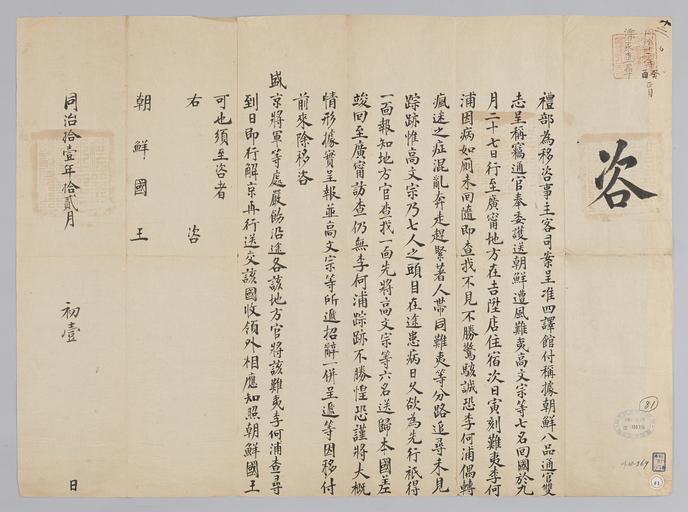 咨
禮部為移咨事主客司案呈准四譯館付稱據朝鮮八品通官雙
志呈稱竊通官奉委護送朝鮮遭風難夷高文宗等七名回國於九
月二十七日行至廣甯地方在吉陞店住宿次日寅刻難夷李何
浦因病如厠未回隨即查找不見不勝驚駭誠恐李何浦偶轉
瘋迷之症混亂奔走趕緊著人帶同難夷等分路追尋未見
踪跡惟高文宗乃七人之頭目在途患病日久欲為先行祇得
一面報知地方官查找一面先將高文宗等六名送歸本國差
竣回至廣甯訪查仍無李何浦踪跡不勝惶恐謹將大概
情形據實呈報並高文宗等所遞招辭一併呈遞等因移付
前來除移咨
盛京將軍等處嚴飭沿途各該地方官將該難夷李何浦查尋
到日即行解京再行送交該國收領外相應知照朝鮮國王
可也須至咨者
右咨
朝鮮國王
同治拾壹年拾貳月初壹日
81